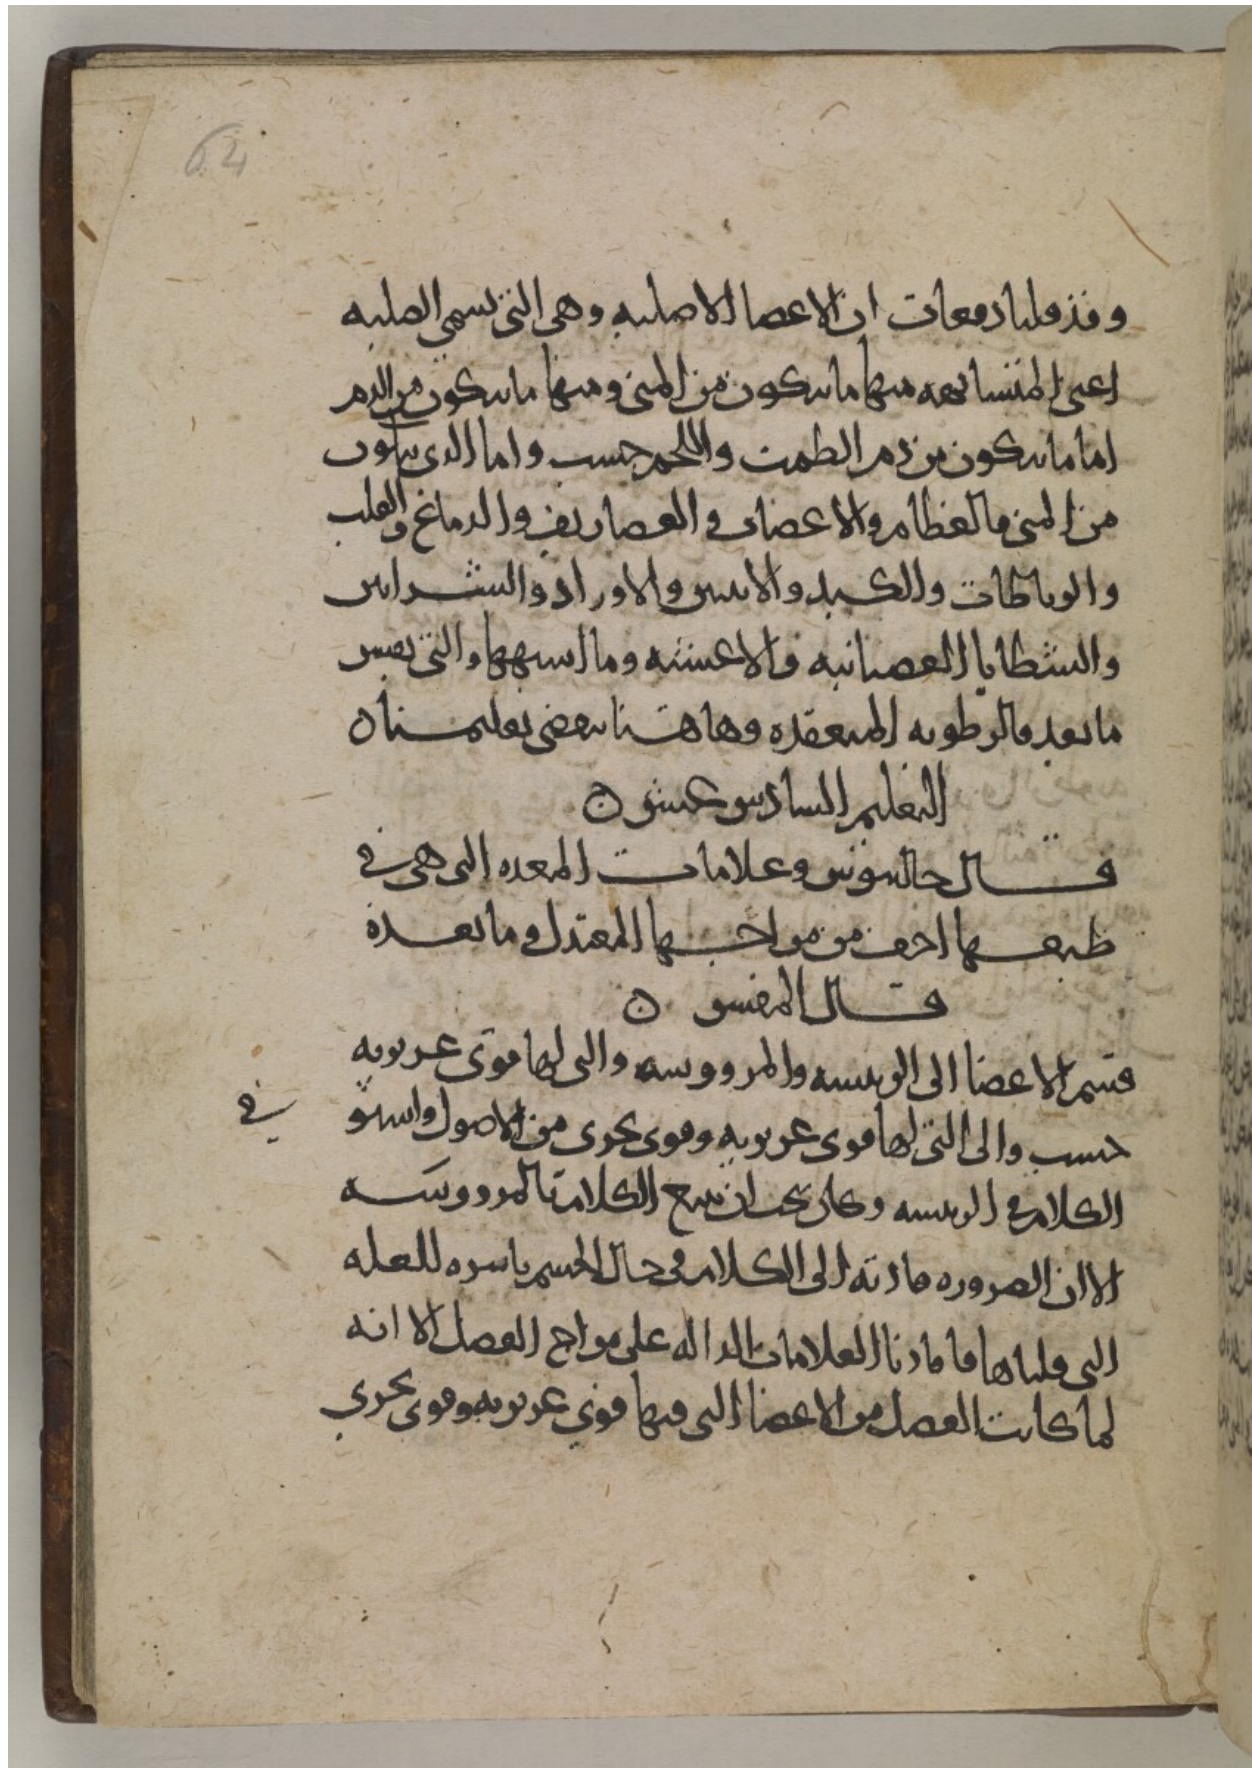 64
وقد قلنا دفعات ان الاعضا الاصليه وهى التى تسمى الصلبه
اعنى المتشابهه منها ما يتكون من المنى ومنها ما يتكون من الدم
اما ما يتكون من دم الطمث واللحم حسب واما الذى يتكون
من المنى فالعظام والاعصاب والغضاريف والدماغ والقلب
والرباطات والكبد والانثيين والاوراد والشرايين
والشظايا العصبانيه والاغشيه وما اشبهها والتى تصير
ما بعد فالرطوبه المنعقده وهاهنا ينقضى تعليمنا ه
التعليم السادس عشر ه
قال جالينوس وعلامات المعده التى هى فى
طبعها اجف من مزاجها المعتدل وما بعده
قال المفسر ه
قسم الاعضا الى الرييسه والمرووسه والتى لها قوى غريزيه
حسب والى التى لها قوى غريزيه وقوى تجرى من الاصول واستو
فى
الكلام فى الرييسه وكان يجب ان يتبع الكلام بالمرووسه
الا ان الضروره قادته الى الكلام فى حال الجسم باسره للعله
التى قلناها فافادنا العلامات الداله على مزاج العضل الا انه
لما كانت العضل من الاعضا التى فيها قوى غريزيه وقوى تجرى